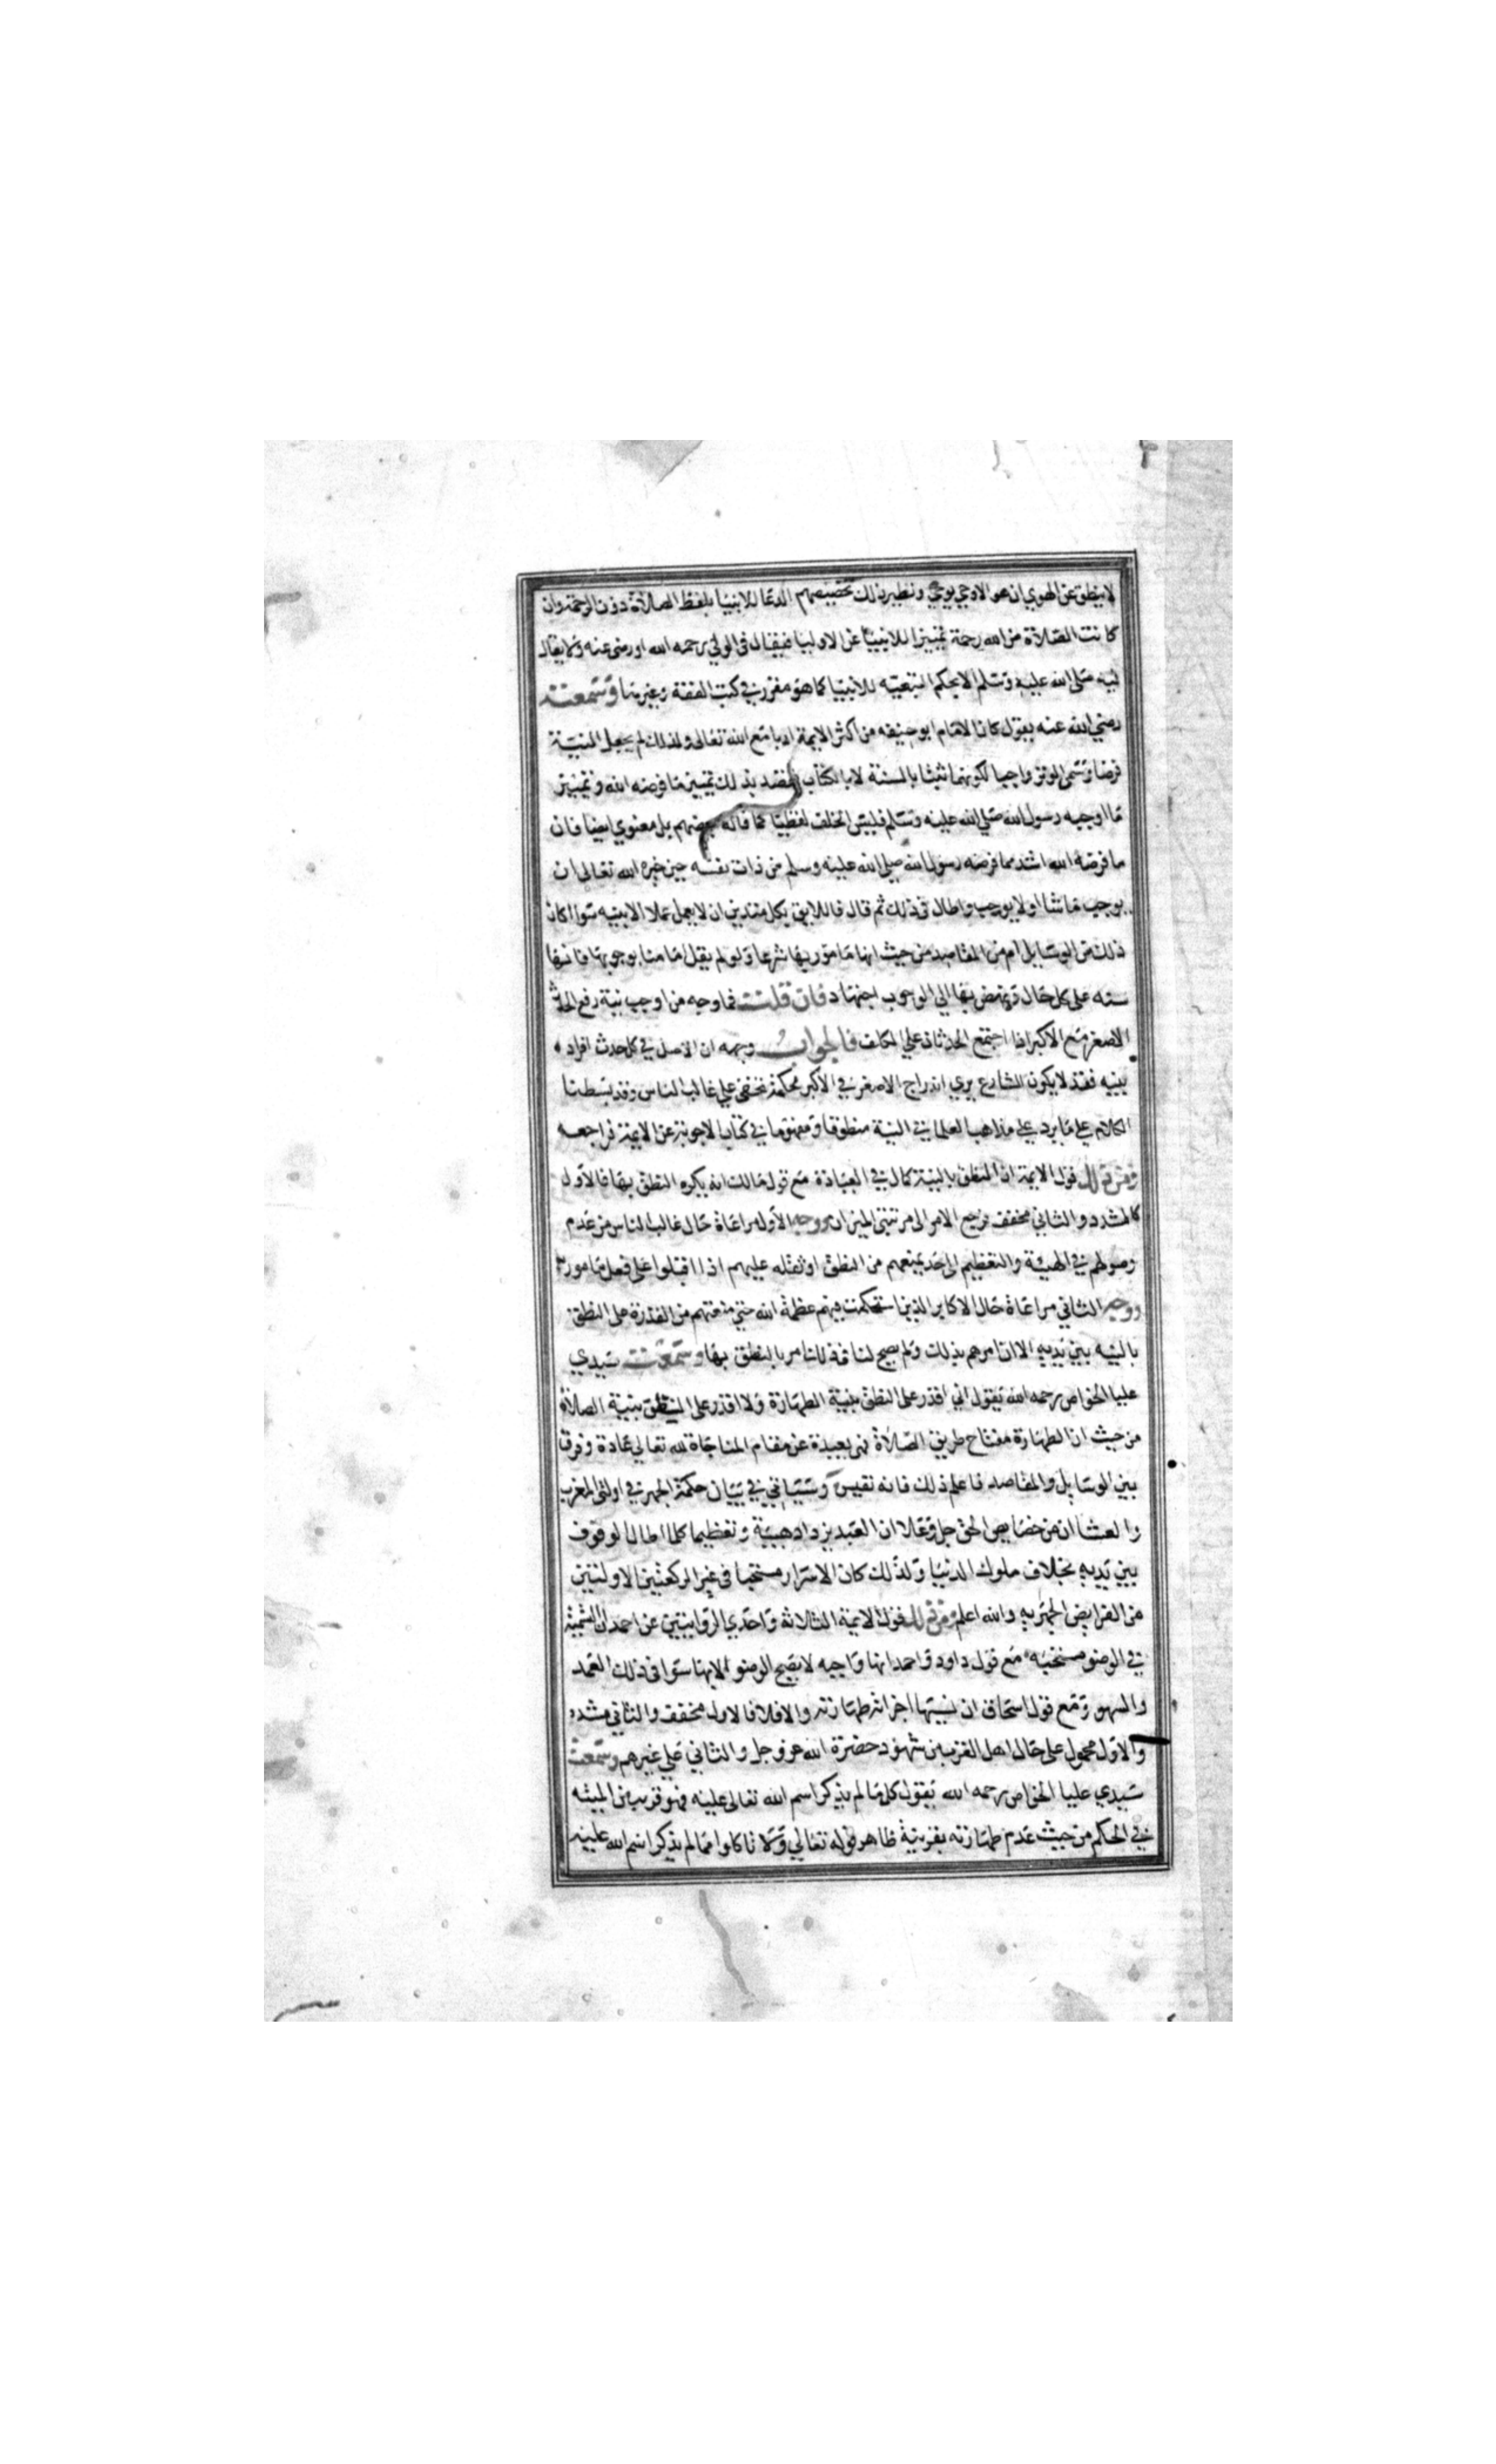 لا ينطق عن الهوي ان هو الا وحي يوحي ونظير ذلك تخصيصهم الدعا للانبيا بلفظ الصلاة دون الرحمة وان
كانت الصلاة من الله رحمة تمييزا للانبيا عن الاوليا فيقال في الولي رحمه الله او رضي عنه ولا يقال
فيه صلي الله عليه وسلم الا بحكم التبعيه للانبيا كما هو مقرر في كتب الفقه وغيرها وسمعته
رضي الله عنه يقول كان الامام ابو حنيفه من اكثر الايمة ادبا مع الله تعالي ولذلك لم يجعل النية
فرضا وسمي الوتر واجبا لكونهما ثبتا بالسنة لا بالكتاب فقصد بذلك تمييز ما فرضه الله وتمييز
ما اوجبه رسول الله صلي الله عليه وسلم فليس الخلف لفظيا كما قاله بعضهم بل معنوي ايضا فان
ما فرضه الله اشد مما فرضه رسول الله صلي الله عليه وسلم من ذات نفسه حين خيره الله تعالي ان
يوجب ما شا او لا يوجب واطال في ذلك ثم قال فاللايق بكل متدين ان لا يعمل عملا الا بنيه سوا اكان
ذلك من الوسايل ام من المقاصد من حيث انها مامور بها شرعا ولو لم يقل امامنا بوجوبها فانها
سنه علي كل حال ونهض بها الي الوجوب اجتهاد فان قلت فما وجه من اوجب نية رفع الحدث
الاصغر مع الاكبر اذا اجتمع الحدثان علي المكلف فالجواب وجهه ان الاصل في كل حدث افراده
بنيه فقد لا يكون الشارع يري اندراج الاصغر في الاكبر لحكمة تخفي علي غالب الناس وقد بسطنا
الكلام علي ما يرد علي مذاهب العلما في النية منطوقا ومفهوما في كتاب الاجوبة عن الايمة فراجعه
ومن ذلك قول الايمة ان النطق بالنية كمال في العبادة مع قول مالك انه يكره النطق بها فالاول
كالمشدد والثاني مخفف فرجع الامر الي مرتبتي الميزان ووجه الاول مراعاة حال غالب الناس من عدم
وصولهم في الهيبة والتعظيم الي حد يمنعهم من النطق او ثقله عليهم اذا اقبلوا علي فعل مامور
ووجه الثاني مراعاة حال الاكابر الذين استحكمت فيهم عظمة الله حتي منعتهم من القدرة علي النطق
بالنيه بين يديه الا ان امرهم بذلك ولم يصح لنا في ذلك امر بالنطق بها وسمعت سيدي
عليا الخواص رحمه الله يقول اني اقدر علي النطق بنية الطهارة ولا اقدر علي النطق بنية الصلاة
من حيث ان الطهارة مفتاح طريق الصلاة فهي بعيدة عن مقام المناجاة لله تعالي عادة وفرق
بين الوسايل والمقاصد فاعلم ذلك فانه نفيس وسياتي في بيان حكمة الجهر في اولتي المغرب
والعشا ان من خصايص الحق جل وعلا ان العبد يزداد هيبة وتعظيما كلما اطال الوقوف
بين يديه بخلاف ملوك الدنيا ولذلك كان الاسرار مستحبا في غير الركعتين الاولتين
من الفرايض الجهريه والله اعلم ومن ذلك قول الايمة الثلاثة واحدي الروايتين عن احمد ان التسمية
في الوضو مستحبه مع قول داود واحمد انها واجبه لا يصح الوضو الا بها سوا في ذلك العمد
والسهو ومع قول اسحاق ان نسيها اجزاته طهارته والا فلا فالاول مخفف والثاني مشدد
والاول محمول علي حال اهل القرب من شهود حضرة الله عز وجل والثاني علي غيرهم وسمعت
سيدي عليا الخواص رحمه الله يقول كل ما لم يذكر اسم الله تعالي عليه فهو قريب من الميته
في الحكم من حيث عدم طهارته بقرينة ظاهر قوله تعالي ولا تاكلوا مما لم يذكر اسم الله عليه